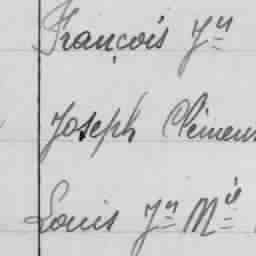 François Jn
Joseph Clémens
Louis Jn Mie